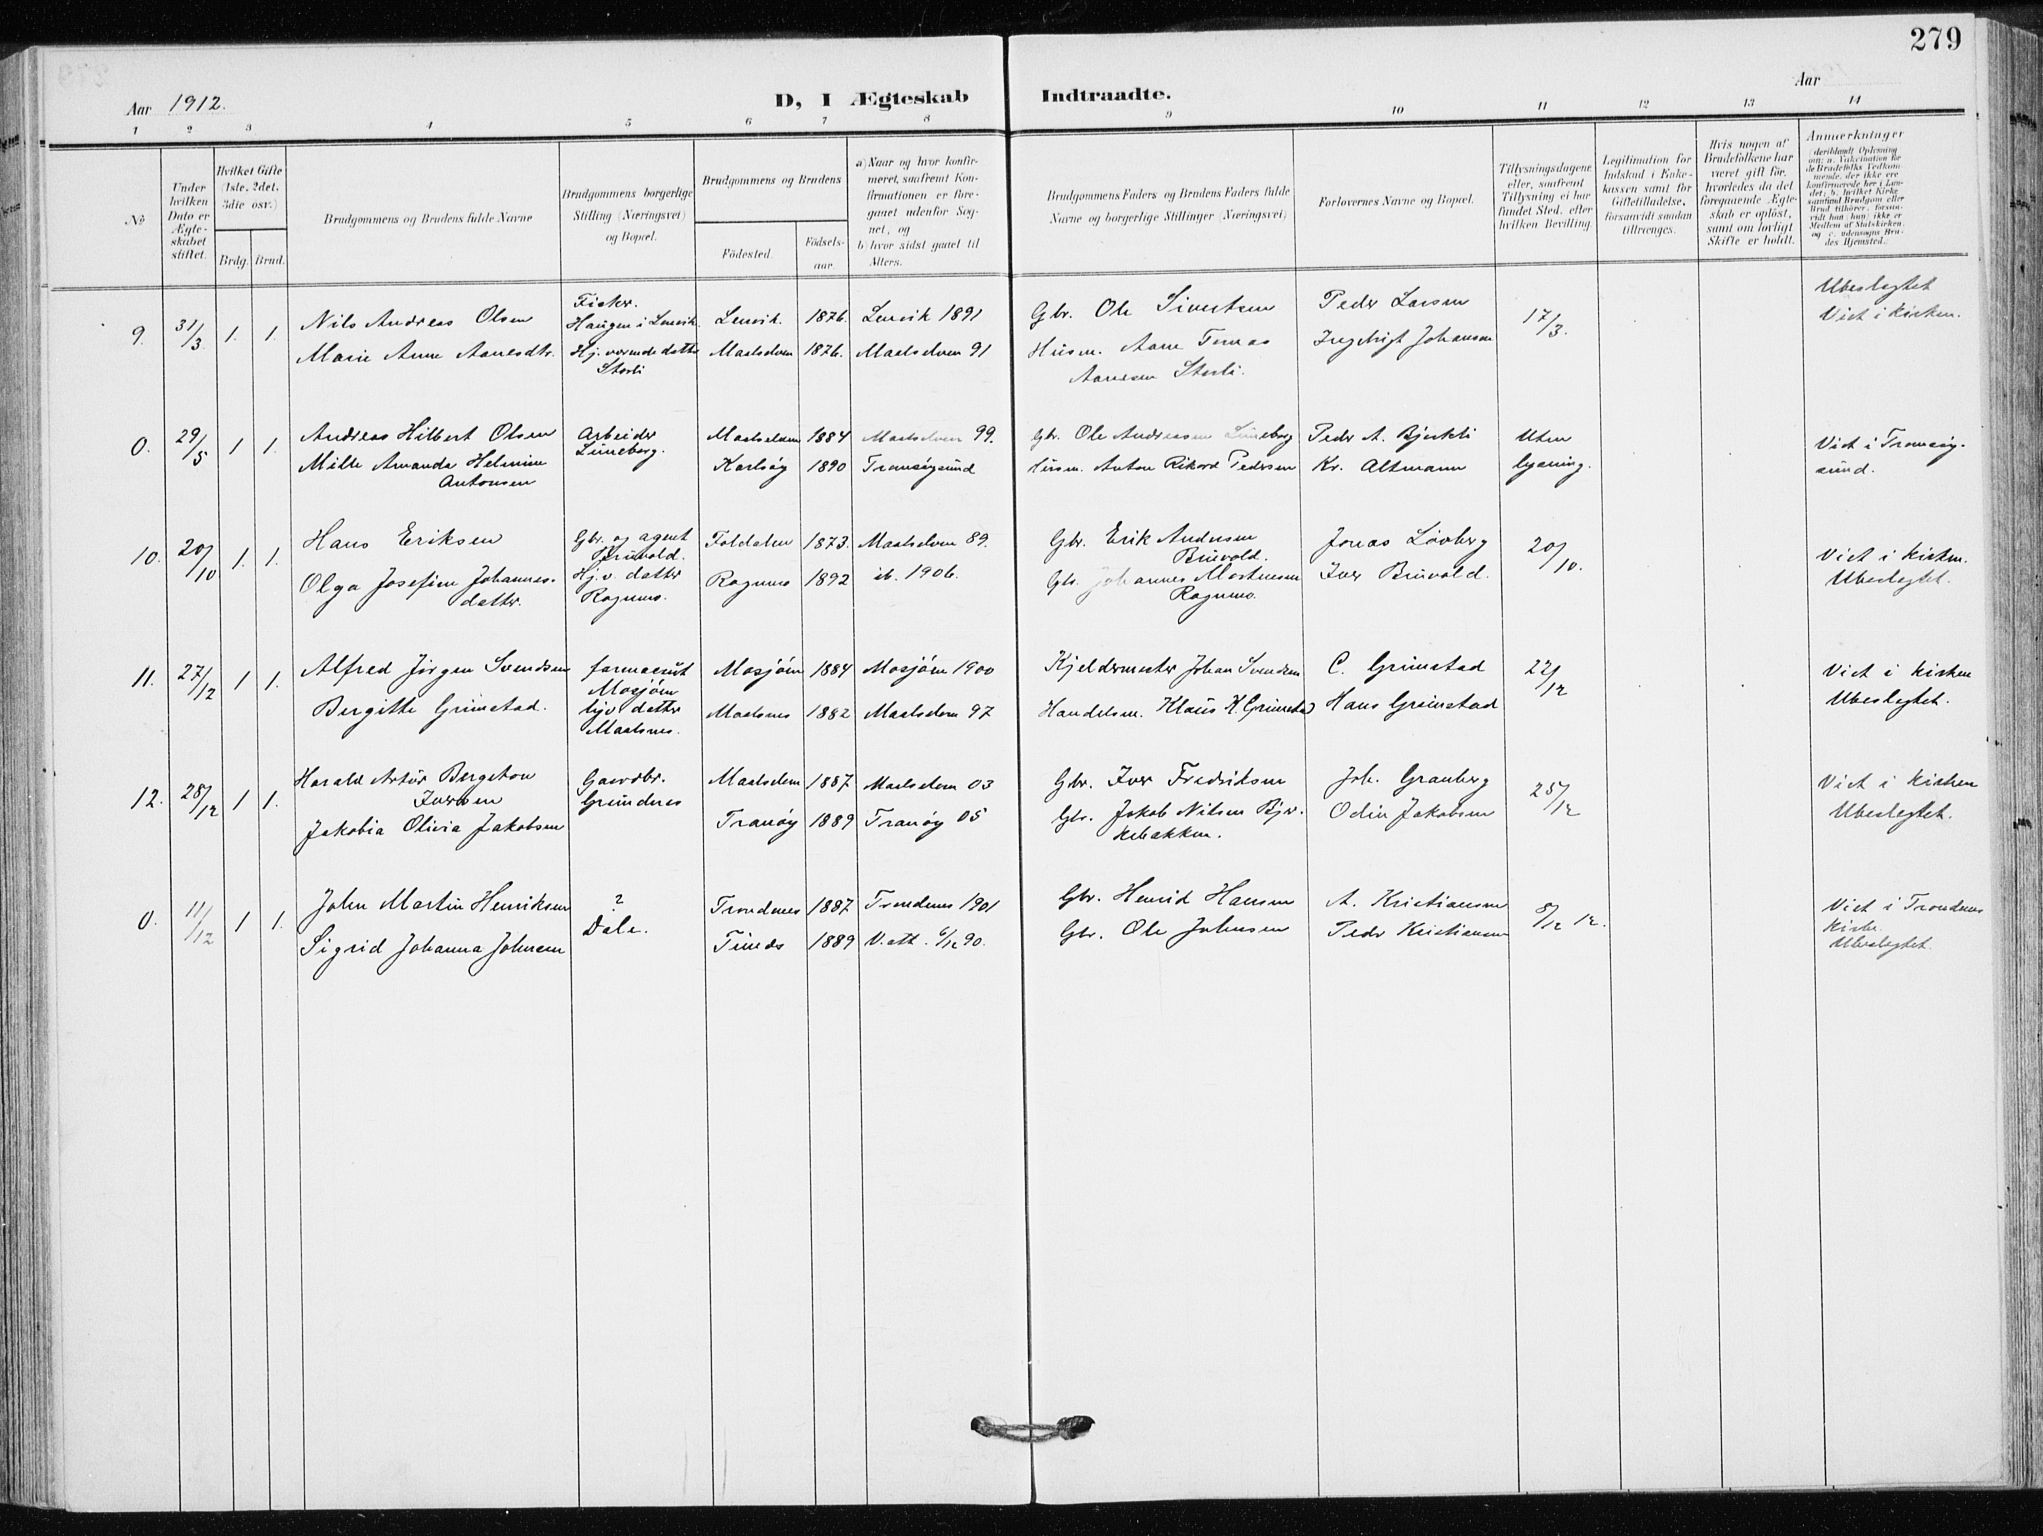 279
Aar 1912.
D, I Ægteskab Indtraadte.
Aar
1 2 3 4 5 6 7 8 9 10 11 12 13 14
No
Under hvilken Dato er Ægteskabet stiftet.
Hvilket Gifte (1ste, 2det, 3die osv.)
Brdg. Brud.
Brudgommens og Brudens fulde Navne
Brudgommens borgerlige Stilling (Næringsvei) og Bopæl.
Brudgommens og Brudens
Födested.
Födselsaar.
a) Naar og hvor konfirmeret, saafremt Konfirmationen er foregaaet udenfor Sognet, og
b) hvor sidst gaaet til Alters.
Brudgommens Faders og Brudens Faders fulde Navne og borgerlige Stillinger (Næringsvei).
Forlovernes Navne og Bopæl.
Tillysningsdagene eller, saafremt Tillysning ei har fundet Sted, efter hvilken Bevilling.
Legitimation for Indskud i Enkekassen samt for Giftetilladelse, forsaavidt saadan tiltrænges.
Hvis nogen af Brudefolkene har været gift før, hvorledes da det foregaaende Ægteskab er oplöst, samt om lovligt Skifte er holdt.
Anmærkninger
9. 31/3 1. 1. Nils Andreas Olsen
Marie Anne Aanesdtr.
Fisker.
Haugen i Lenvik.
Hj. værende datter
Storli
Lenvik. 1876. Lenvik 1891
Maalselven 1876. Maalselven 91
Gbr. Ole Sivertsen
Husm. Aane Tomas
Aanesen Storli.
Peder Larsen
Ingebrigt Johansen
17/3.
Ubeslegtet
Viet i kirken.
0. 29/5 1 1. Andreas Hilbert Olsen
Milli Amanda Helmine
Antonsen
Arbeider
Lüneborg.
Maalselven 1884 Maalselven 99.
Karlsöy 1890 Tromsöysund
Gbr. Ole Andreassen Lüneborg
Husm. Anton Rikard Pedersen
Peder A. Bjerkli
Kr. Altmann
Uten
lysning.
Viet i Tromsöy-
sund.
10. 20/10 1. 1. Hans Eriksen
Olga Josefine Johannes-
datter.
Gbr. og agent
Bruvold.
Hj. v. datter
Rognmo.
Foldalen 1873. Maalselven 89.
Rognmo 1892 ib. 1906.
Gbr. Erik Andersen
Bruvold.
Gbr. Johannes Martinesen
Rognmo.
Jonas Lövberg
Iver Bruvold.
20/10.
Viet i kirken.
Ubeslegtet.
11. 27/12 1 1. Alfred Jörgen Svendsen
Bergitte Grimstad.
farmaceut
Mosjöen
hjv. datter
Maalsnes.
Mosjöen 1884 Mosjöen 1900
Maalsnes 1882 Maalselven 97
Kjeldermester Johan Svendsen
Handelsm. Klaus K. Grimstad
C. Grimstad
Hans Grimstad
22/12
Viet i kirken
Ubeslegtet.
12. 28/12 1 1. Harald Artur Bergeton
Iversen
Jakobia Olivia Jakobsen
Gaardbr.
Grundnes
Maalselven 1887 Maalselven 03
Tranöy 1889 Tranöy 05
Gbr. Iver Fredriksen
Gbr. Jakob Nilsen Bjer-
kebakken.
Joh. Granberg
Odin Jakobsen
25/12
Viet i kirken
Ubeslegtet.
0. 11/12 1 1. John Martin Henriksen
Sigrid Johanna Johnsen
?
Dale.
Trondenes 1887 Trondenes 1901
1889 V. att. 6/12 90.
Gbr. Henrik Hansen
Gbr. Ole Johnsen
A. Kristiansen
Peder Kristiansen
8/12 12.
Viet i Trondenes
Kirke.
Ubeslegtet.